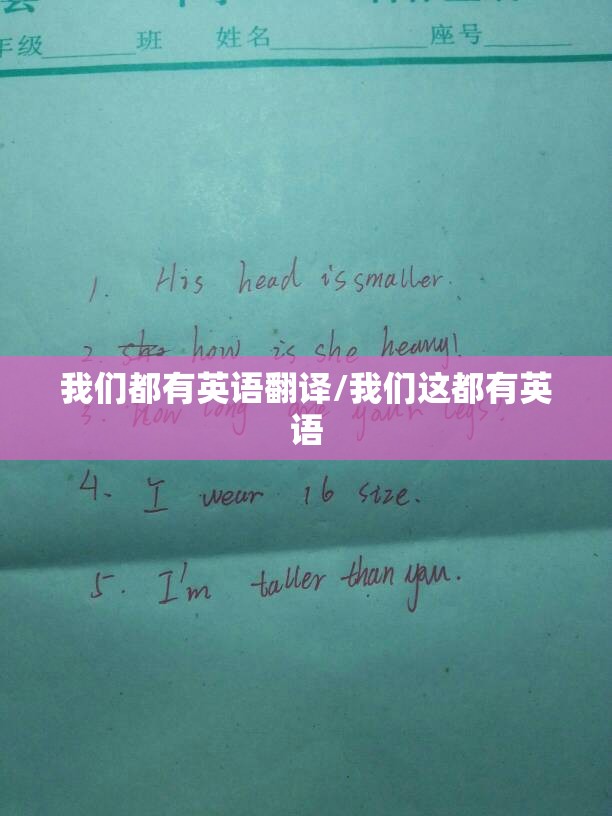 年级 班 姓名 座号
1. His head is smaller.
2. she how is she heavy!
我们都有英语翻译/我们这都有英
语
3. How long are your legs?
4. I wear 16 size.
5. I'm taller than you.